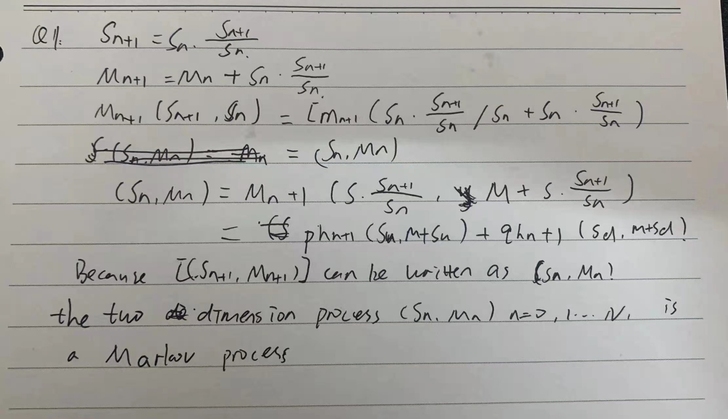 Q1. Sn+1 = Sn · Sn+1/Sn
Mn+1 = Mn + Sn · Sn+1/Sn
Mn+1 (Sn+1, Sn) = [Mn+1 (Sn · Sn+1/Sn / Sn + Sn · Sn+1/Sn)
= (Sn, Mn)
(Sn, Mn) = Mn+1 (S · Sn+1/Sn, M + S · Sn+1/Sn)
= phn+1 (Su, M+Su) + qhn+1 (Sd, M+Sd)
Because [(Sn+1, Mn+1)] can be written as (Sn, Mn)
the two dimension process (Sn, Mn) n=0, 1... N, is
a Markov process